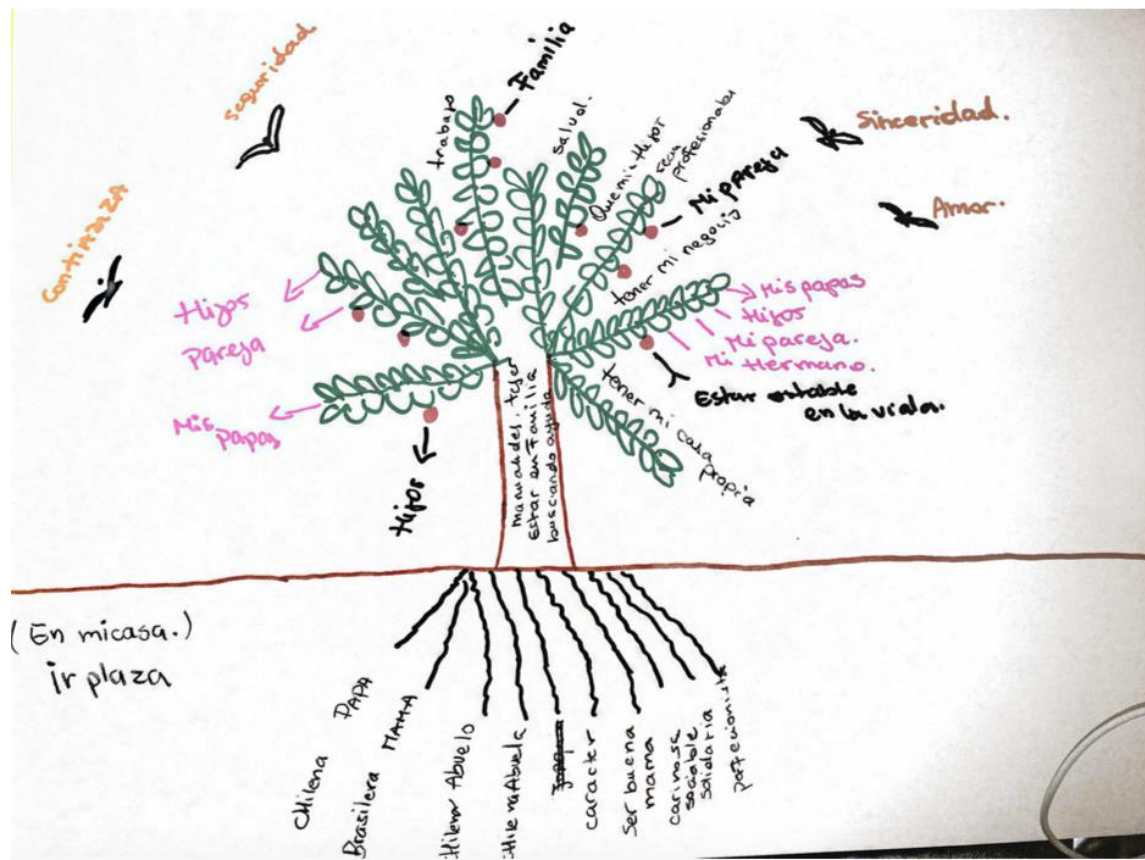 Seguridad
Familia
trabajo
salud.
Que mis Hijos
sean
profesionales
Sinceridad.
Mi pareja
Amor.
Confinaza
tener mi negocio
Hijos
pareja
Mis papas
Hijos
Mi pareja.
Mi Hermano.
Mis
papas
Estar estable
en la vida.
tener mi casa propia
Hijos
manualides. tejer
Estar en Familia
busciando ayuda
(En mi casa.)
ir plaza
Chilena PAPA
Brasilera MAMA
Hilena Abuelo
Hilena Abuela
caracter
Ser buena
mama
carinosa
sociable
solidaria